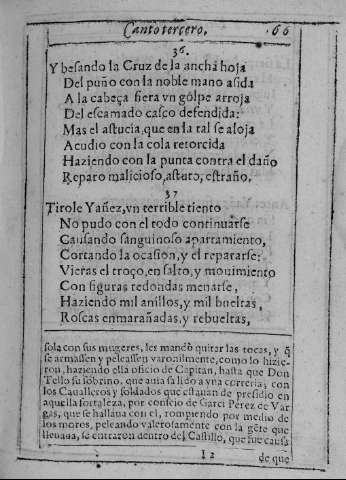 Canto tercero. 66
36.
Y besando la Cruz de la ancha hoja
Del puño con la noble mano asida
A la cabeça fiera vn gólpe arroja
Del escamado casco defendida:
Mas el astucia, que en la tal se aloja
Acudio con la cola retorcida
Haziendo con la punta contra el daño
Reparo malicioso, asturo, estraño,
37
Tirole Yañez, vn terrible tiento
No pudo con el todo continuarse
Causando sanguinoso apartamiento,
Cortando la ocasion, y el repararse:
Vieras el troço, en salto, y mouimiento
Con figuras redondas menarse,
Haziendo mil anillos, y mil bueltas,
Roscas enmarañadas, y rebueltas,
sola con sus mugeres, les mandò quitar las tocas, y q̃
se armassen y peleassen varonilmente, como lo hizie-
ron, haziendo ella oficio de Capitan, hasta que Don
Tello su sobrino, que auia salido a vna correria; con
los Caualleros y soldados que estauan de presidio en
aquella fortaleza, por consejo de Garci Perez de Var
gas, que se hallaua con el, rompiendo por medio de
los moros, peleando valerosamente con la gẽte que
lleuaua, se entraron dentro del Castillo, que fue causa
I 2 de que